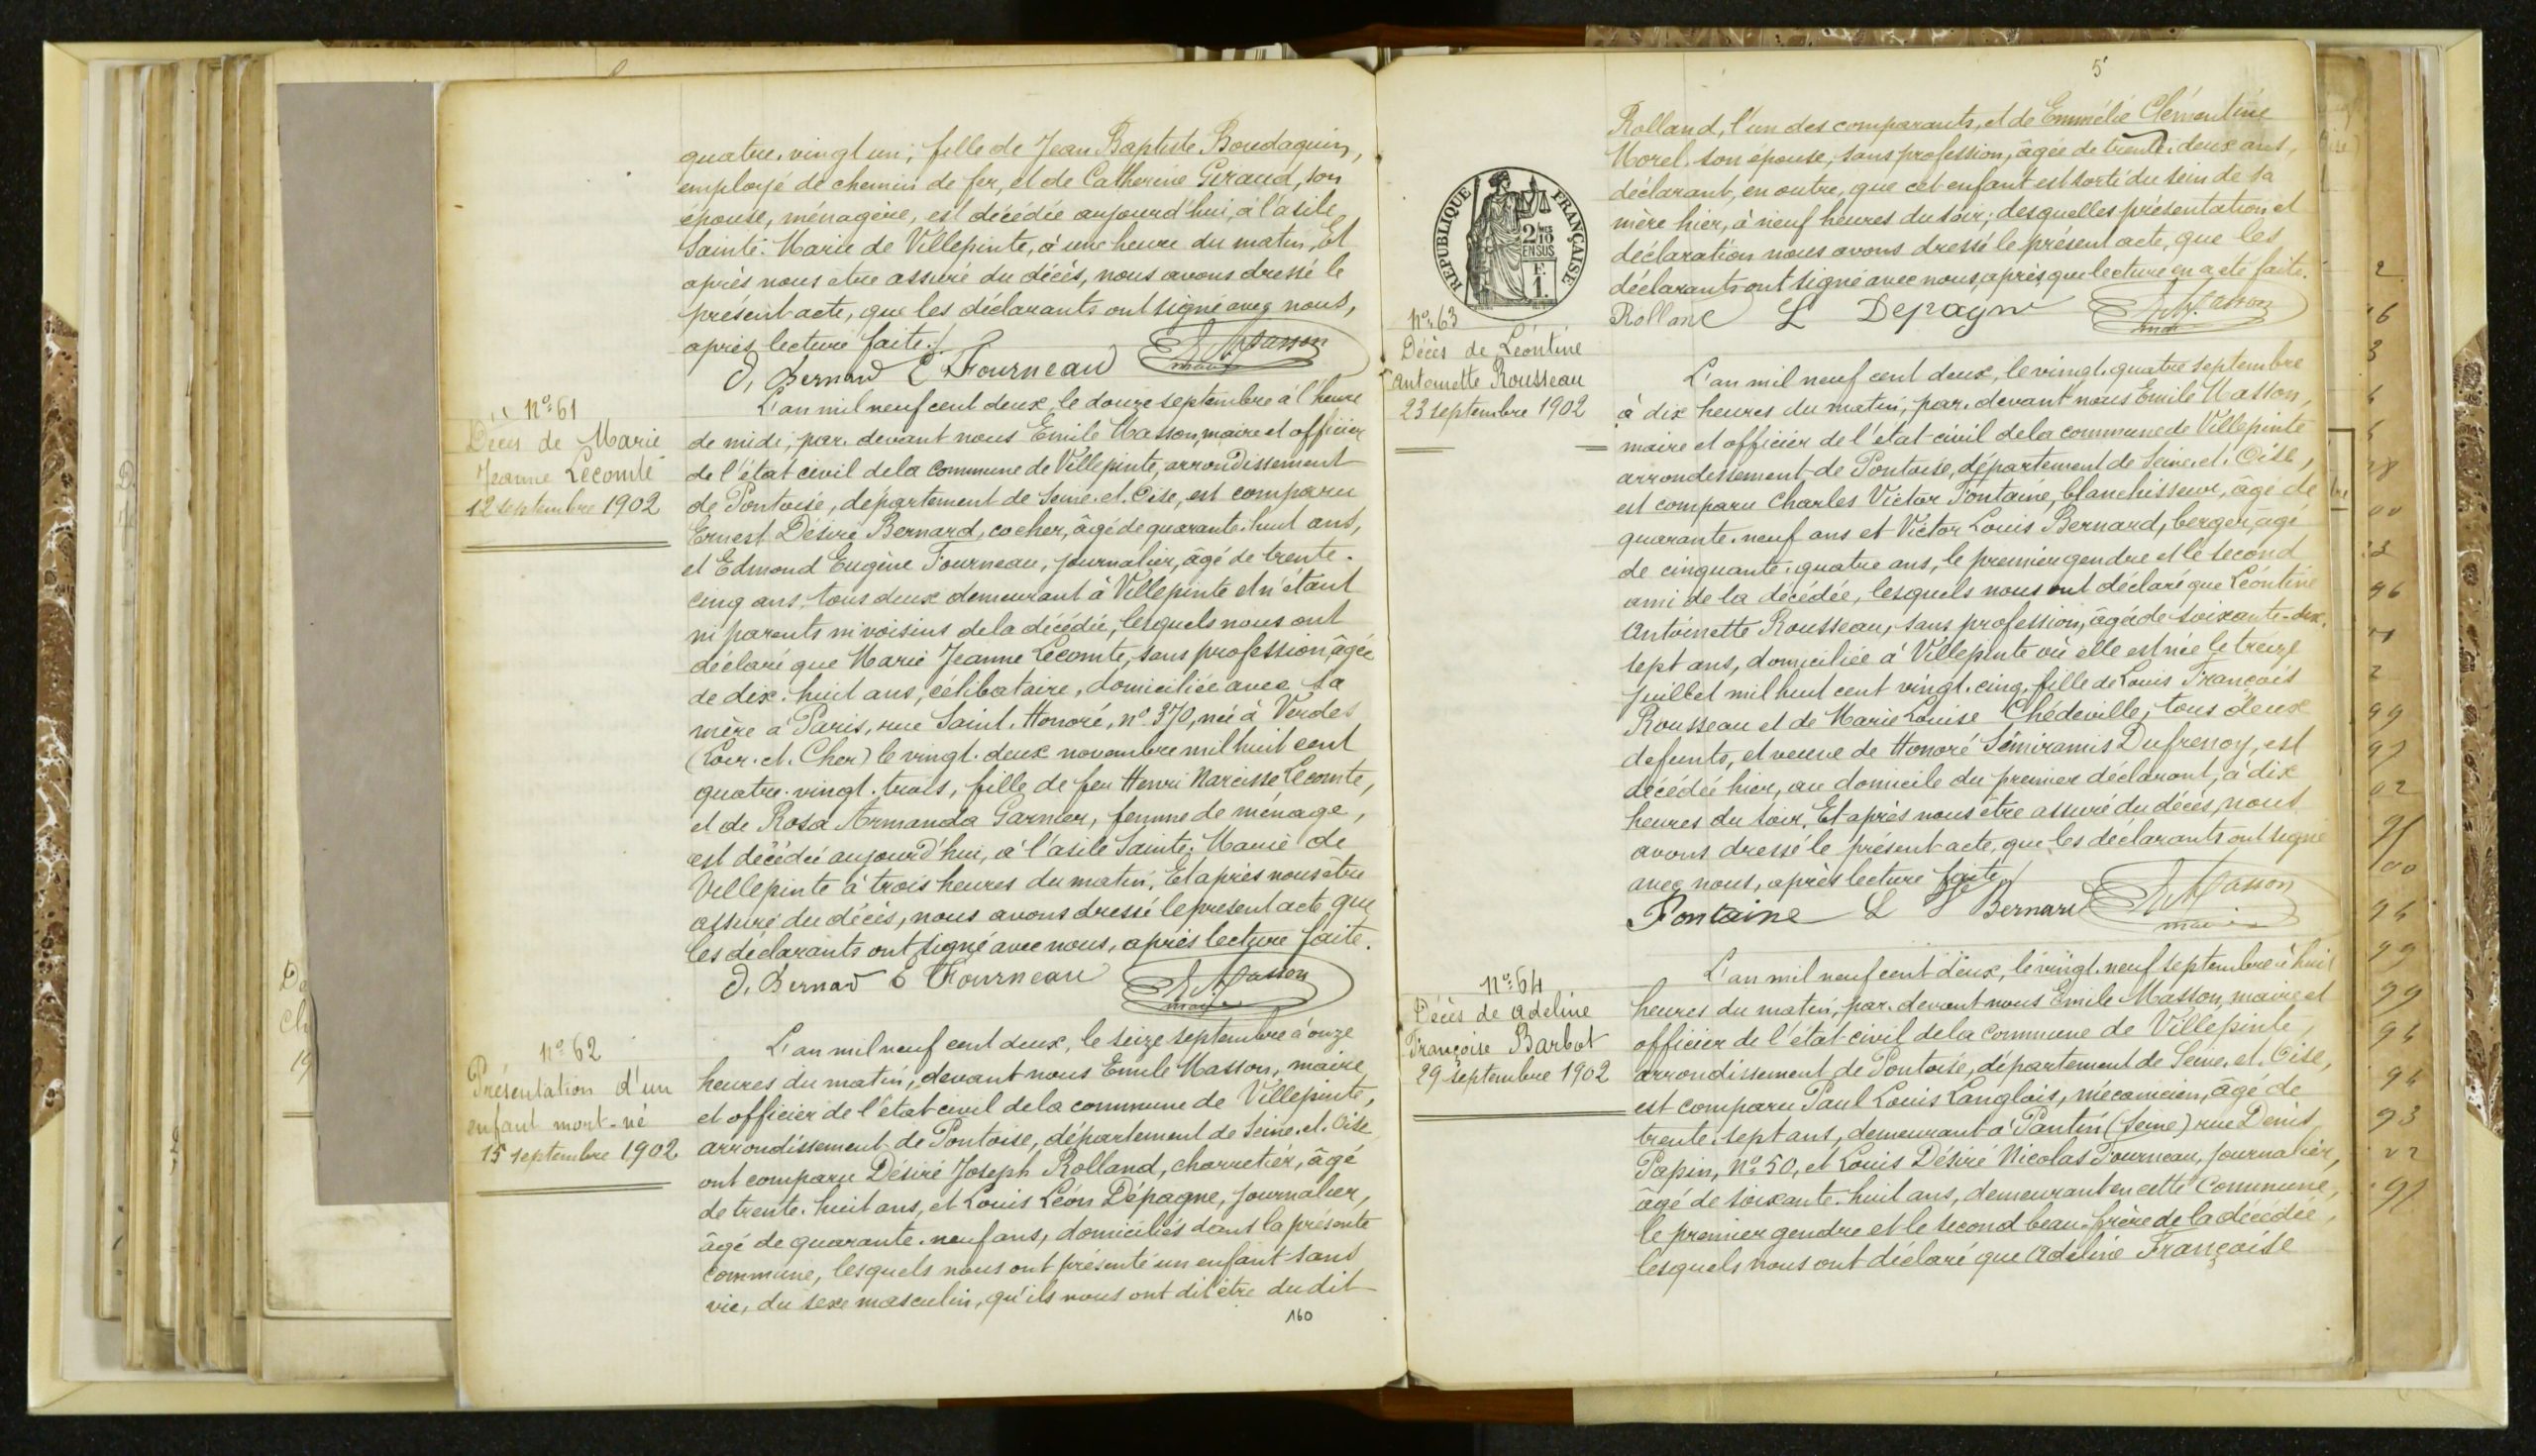 quatre. vingt un; fille de Jean Baptiste Boudaquin,
employé de chemin de fer, et de Catherine Giraud, son
épouse, ménagère, est décédée aujourd'hui, à l'asile
Sainte. Marie de Villepinte, à une heure du matin. Et
après nous être assuré du décès, nous avons dressé le
présent acte, que les déclarants ont signé avec nous,
après lecture faite.
D. Bernard E Fourneau E Masson
maire
n° 61
Décès de Marie
Jeanne Lecomte
12 septembre 1902
L'an mil neuf cent deux, le douze septembre à l'heure
de midi, par. devant nous Emile Masson, maire et officier
de l'état civil de la commune de Villepinte, arrondissement
de Pontoise, département de Seine. et. Oise, est comparu
Ernest Désiré Bernard, cocher, âgé de quarante. huit ans,
et Edmond Eugène Fourneau, journalier, âgé de trente.
cinq ans, tous deux demeurant à Villepinte et n'étant
ni parents ni voisins de la décédée, lesquels nous ont
déclaré que Marie Jeanne Lecomte, sans profession, âgée
de dix. huit ans, célibataire, domiciliée avec sa
mère à Paris, rue Saint. Honoré, n° 370, née à Verdes
(Loir. et. Cher) le vingt. deux novembre mil huit cent
quatre. vingt. trois, fille de feu Henri Narcisse Lecomte,
et de Rosa Armanda Garnier, femme de ménage,
est décédée aujourd'hui, à l'asile Sainte. Marie de
Villepinte à trois heures du matin. Et après nous être
assuré du décès, nous avons dressé le présent acte que
les déclarants ont signé avec nous, après lecture faite.
D. Bernard E Fourneau E Masson
maire
n° 62
Présentation d'un
enfant mort-né
15 septembre 1902
L'an mil neuf cent deux, le seize septembre à onze
heures du matin, devant nous Emile Masson, maire
et officier de l'état civil de la commune de Villepinte,
arrondissement de Pontoise, département de Seine. et. Oise
ont comparu Désiré Joseph Rolland, charretier, âgé
de trente. huit ans, et Louis Léon Dépagne, journalier,
âgé de quarante. neuf ans, domiciliés dans la présente
commune, lesquels nous ont présenté un enfant sans
vie, du sexe masculin, qu'ils nous ont dit être du dit
160
5
REPUBLIQUE FRANÇAISE
2/10 EN SUS
F. 1.
Rolland, l'un des comparants, et de Emmélie Clémentine
Morel. son épouse, sans profession, âgée de trente. deux ans,
déclarant, en outre, que cet enfant est sorti du sein de sa
mère hier, à neuf heures du soir; desquelles présentation et
déclaration nous avons dressé le présent acte, que les
déclarants ont signé avec nous, après que lecture en a été faite.
Rolland L Depagne E Masson
n° 63
Décès de Léontine
Antoinette Rousseau
23 septembre 1902
L'an mil neuf cent deux, le vingt. quatre septembre
à dix heures du matin, par. devant nous Emile Masson,
maire et officier de l'état civil de la commune de Villepinte
arrondissement de Pontoise, département de Seine. et. Oise,
est comparu Charles Victor Fontaine, blanchisseur, âgé de
quarante. neuf ans et Victor Louis Bernard, berger, âgé
de cinquante. quatre ans, le premier gendre et le second
ami de la décédée, lesquels nous ont déclaré que Léontine
Antoinette Rousseau, sans profession, âgée de soixante-dix.
sept ans, domiciliée à Villepinte où elle est née le treize
juillet mil huit cent vingt. cinq, fille de Louis François
Rousseau et de Marie Louise Chédeville, tous deux
defunts, et veuve de Honoré Sémiramis Dufrenoy, est
décédée hier, au domicile du premier déclarant, à dix
heures du soir. Et après nous être assuré du décès, nous
avons dressé le présent acte, que les déclarants ont signé
avec nous, après lecture faite.
Fontaine L V Bernard E Masson
maire
n° 64
Décès de Adeline
Françoise Barbot
29 septembre 1902
L'an mil neuf cent deux, le vingt. neuf septembre à huit
heures du matin, par. devant nous Emile Masson, maire et
officier de l'état civil de la commune de Villepinte,
arrondissement de Pontoise, département de Seine. et. Oise,
est comparu Paul Louis Langlois, mécanicien, âgé de
trente. sept ans, demeurant à Pantin (Seine) rue Denis
Papin, N° 50, et Louis Désiré Nicolas Fourneau, journalier,
âgé de soixante. huit ans, demeurant en cette commune,
le premier gendre et le second beau. frère de la décédée,
lesquels nous ont déclaré que Adeline Françoise